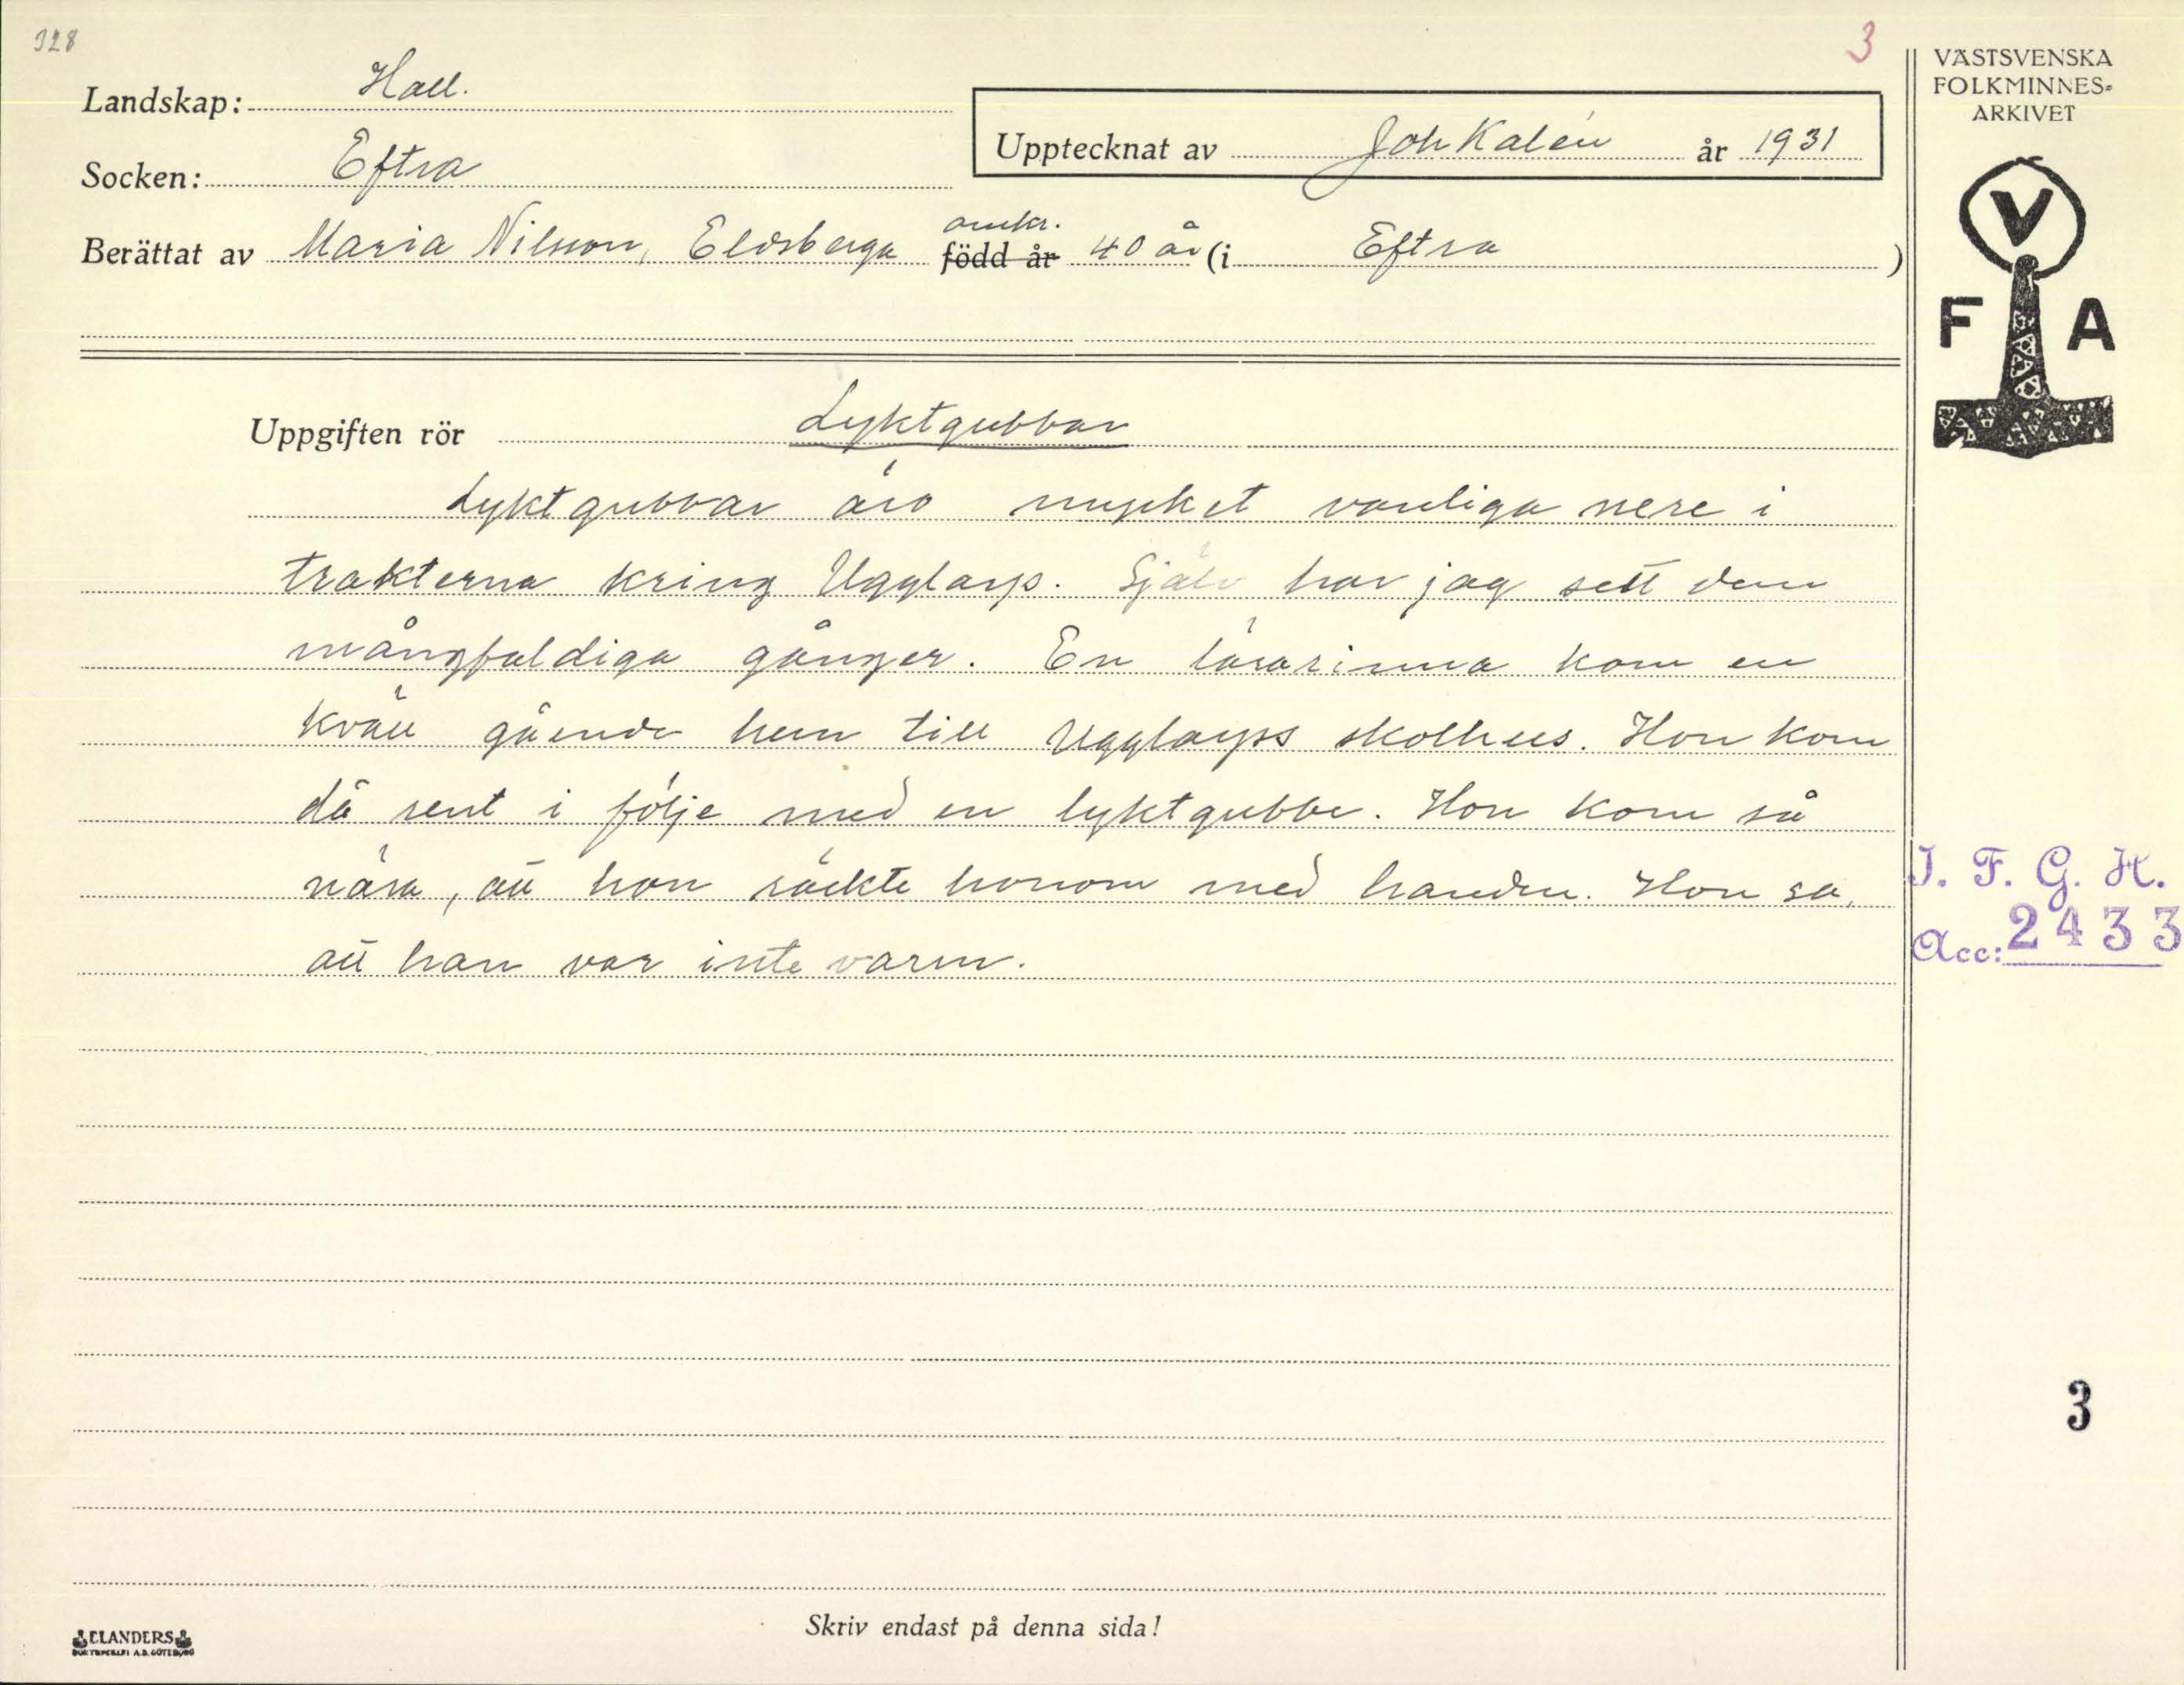 328
3
Landskap: Hall.
Upptecknat av Joh Kalén år 1931
Socken: Eftra
omkr.
Berättat av Maria Nilsson, Eldsberga född år 40 år (i Eftra)
Uppgiften rör Lyktgubbar
Lyktgubbar äro mycket vanliga nere i
trakterna kring Ugglarp. Själv har jag sett dem
mångfaldiga gånger. En lärarinna kom en
kväll gående hem till Ugglarps skolhus. Hon kom
då rent i följe med en lyktgubbe. Hon kom så
nära, att hon räckte honom med handen. Hon sa,
att han var inte varm.
Skriv endast på denna sida!
ELANDERS
BOKTRYCKERI A.B. GÖTEBORG
VÄSTSVENSKA
FOLKMINNES-
ARKIVET
V
F A
I. F. G. H.
Acc: 2433
3